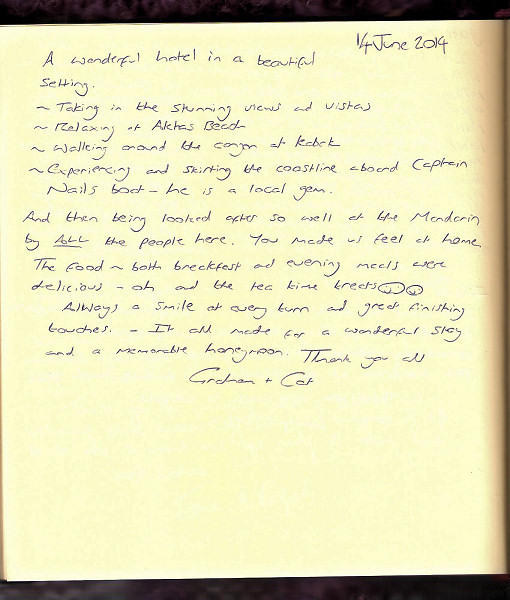 14 June 2014
A wonderful hotel in a beautiful
setting.
~ Taking in the stunning views ad vistas
~ Relaxing at Aktas Beach
~ Walking around the canyon at Kabak
~ Experiencing and skirting the coastline aboard Captain
Nails boat - he is a local gem.
And then being looked after so well at the Mandarin
by ALL the people here. You made us feel at home
The food ~ both breakfast ad evening meals were
delicious - oh and the tea time treats
Always a smile at every turn ad great finishing
touches. - It all made for a wonderful stay
and a memorable honeymoon. Thank you all
Graham + Cat